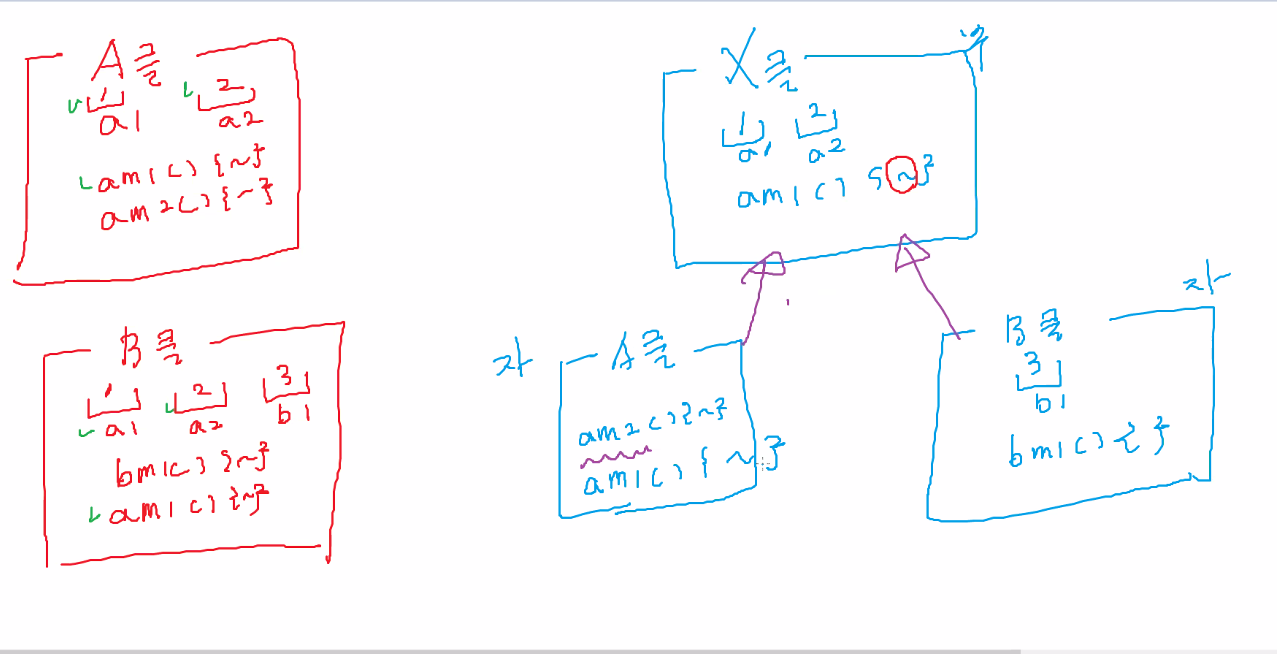 A클
1 2
a1 a2
am1() {~}
am2() {~}
B클
1 2 3
a1 a2 b1
bm1() {~}
am1() {~}
X클
1 2
a1 a2
am1() {~}
자 A클
am2() {~}
am1() {~}
자
B클
3
b1
bm1() { }